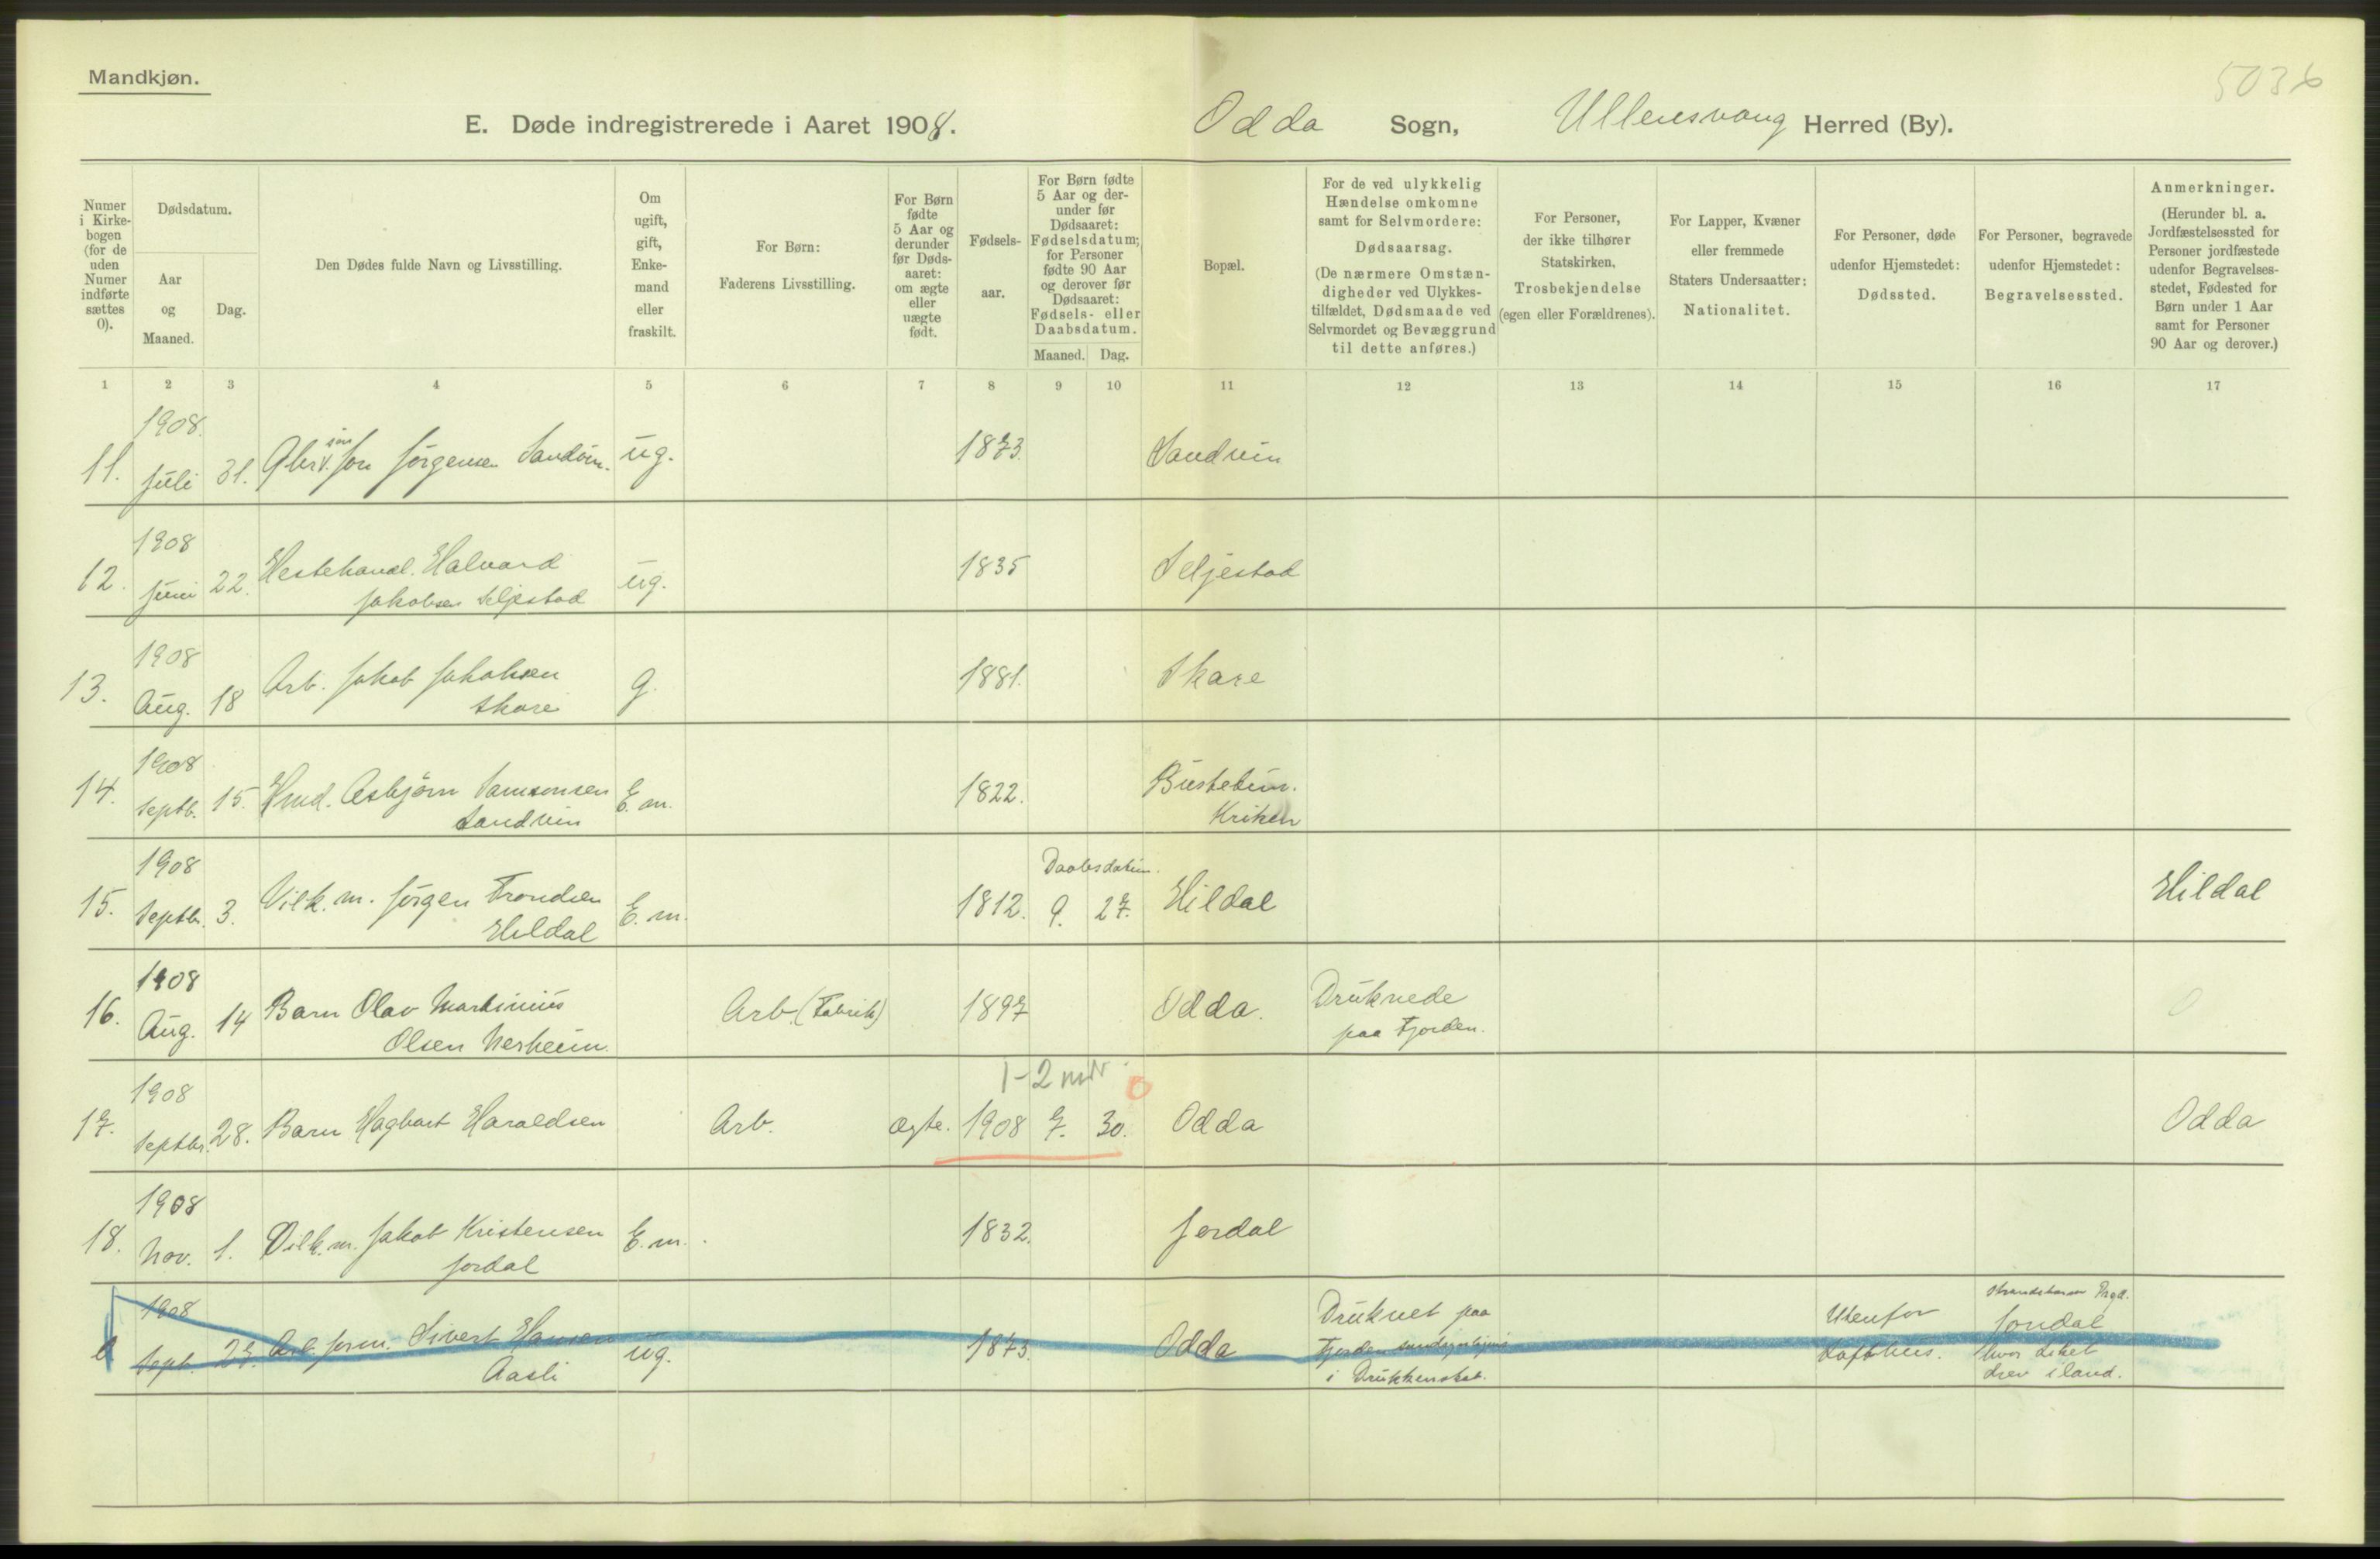 Mandkjøn.
5036
E. Døde indregistrerede i Aaret 1908.
Odda Sogn, Ullensvang Herred (By).
Numer i Kirke-bogen (for de uden Numer indførte sættes 0).
Dødsdatum.
Aar og Maaned.
Dag.
Den Dødes fulde Navn og Livsstilling.
Om ugift, gift, Enke-mand eller fraskilt.
For Børn:
Faderens Livsstilling.
For Børn fødte 5 Aar og derunder før Døds-aaret: om ægte eller uægte født.
Fødsels-aar.
For Børn fødte 5 Aar og der-under før Dødsaaret: Fødselsdatum; for Personer fødte 90 Aar og derover før Dødsaaret: Fødsels- eller Daabsdatum.
Maaned. Dag.
Bopæl.
For de ved ulykkelig Hændelse omkomne samt for Selvmordere:
Dødsaarsag.
(De nærmere Omstæn-digheder ved Ulykkes-tilfældet, Dødsmaade ved Selvmordet og Bevæggrund til dette anføres.)
For Personer, der ikke tilhører Statskirken,
Trosbekjendelse
(egen eller Forældrenes).
For Lapper, Kvæner eller fremmede Staters Undersaatter:
Nationalitet.
For Personer, døde udenfor Hjemstedet:
Dødssted.
For Personer, begravede udenfor Hjemstedet:
Begravelsessted.
Anmerkninger.
(Herunder bl. a. Jordfæstelsessted for Personer jordfæstede udenfor Begravelses-stedet, Fødested for Børn under 1 Aar samt for Personer 90 Aar og derover.)
1 2 3 4 5 6 7 8 9 10 11 12 13 14 15 16 17
1908.
11. Juli 31. Jørgensen Sandvin. ug. 1873. Sandvin
1908
12. Juni 22. Hestehandl. Halvard ug. 1835 Seljestad
Jakobsen Seljestad
1908
13. Aug. 18 Arb. Jakob Jakobsen g. 1881. Skare
Skare
1908
14. Septb. 15. Gmd. Asbjörn Samsonsen E.m. 1822. Bustetun.
Sandvin Kriken
1908 Daabsdatum.
15. Septbr. 3. Vilk.m. Jørgen Trondsen E.m. 1812. 9. 27. Hildal Hildal
Hildal
1908
16. Aug. 14 Barn Olav Martinius Arb. (Fabrik) 1897 Odda. Druknede
Olsen Nerheim. paa Fjorden.
0
1-2 mdr. 0
1908
17. Septbr. 28. Barn Hagbart Haraldsen Arb. ægte. 1908 7. 30. Odda Odda
1908
18. Nov. 1. Vilk.m. Jakob Kristensen E.m. 1832. Jordal
Jordal
1908
0 Septb. 27. Arb. form. Sivert Hansen ug. 1873. Odda
Aasli
Druknet paa
Fjorden sandsynligvis
i Drukkenskab.
Utenfor
Lofthus.
Strandebarm Prgd.
Jondal
hvor Liket
drev iland.